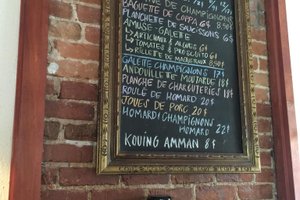 DE CHAMPIGNONS
BAGUETTE DE COPPA 6$
PLANCHETTE DE SAUCISSONS 6$
AMUSE-GALETTE
ARTICHAUT & 6$
TOMATES & PROSCIUTTO 6$
RILLETTE DE MAQUEREAUX
GALETTE CHAMPIGNONS 17$
ANDOUILLE MOUTARDE 18$
PLANCHE DE CHARCUTERIES 18$
ROULÉ DE HOMARD 20$
JOUES DE PORC 20$
HOMARD & CHAMPIGNONS
HOMARD 22$
KOUING AMMAN 8$